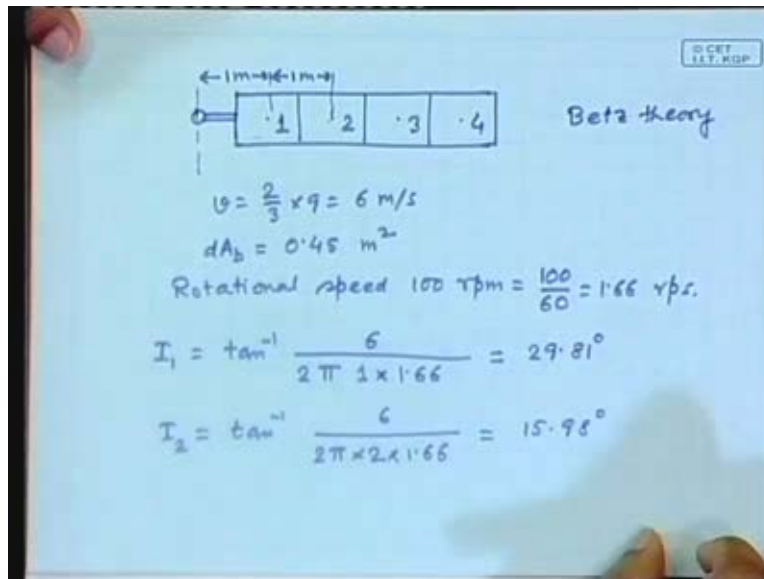 © CET
I.I.T. KGP
1m 1m
1 2 .3 .4
Betz theory
v = 2/3 × 9 = 6 m/s
dA_b = 0.45 m²
Rotational speed 100 rpm = 100/60 = 1.66 rps.
I₁ = tan⁻¹ 6 / (2π 1 × 1.66) = 29.81°
I₂ = tan⁻¹ 6 / (2π × 2 × 1.66) = 15.98°